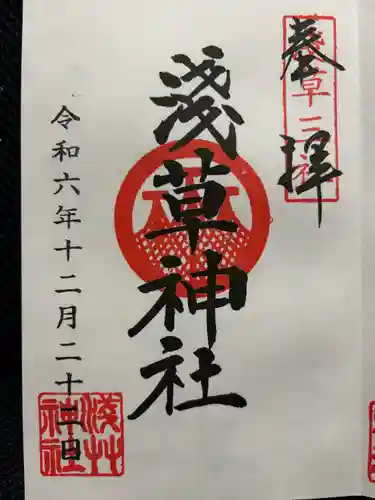 奉拝
淺草三社
淺草神社
令和六年十二月二十二日
淺草神社